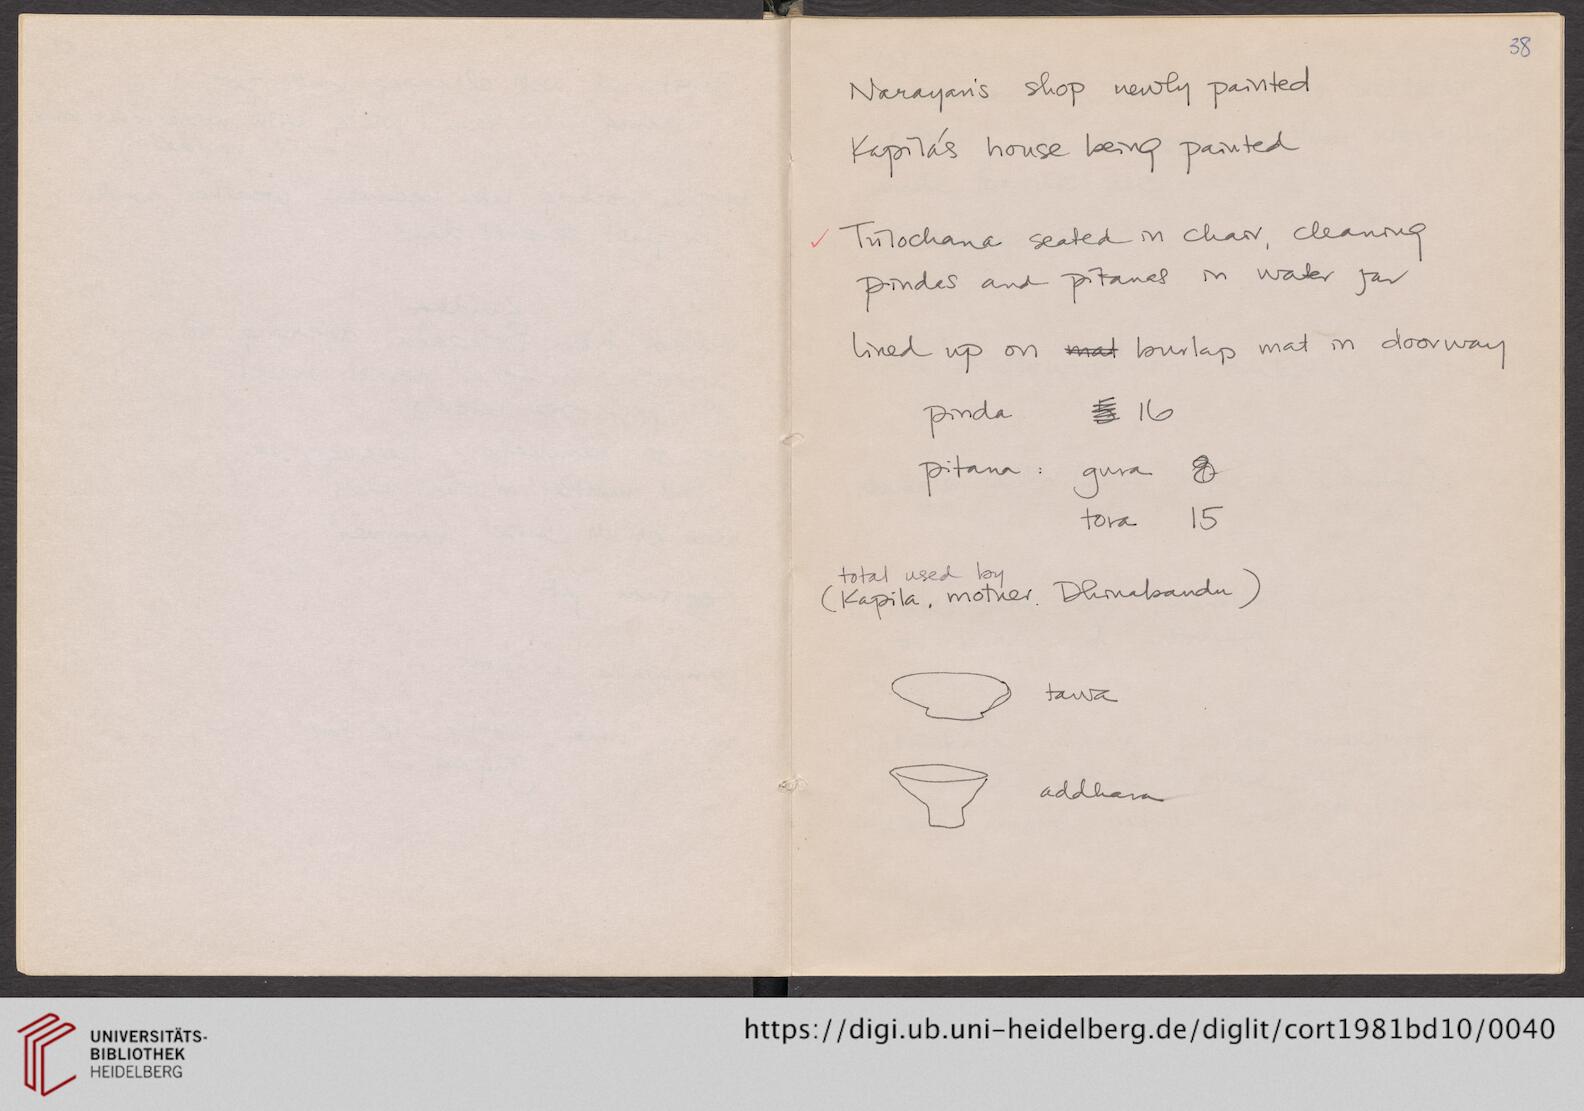 38
Narayan's shop newly painted
Kapila's house being painted
✓ Trilochana seated in chair, cleaning
pindas and pitanas in water jar
lined up on mat burlap mat in doorway
pinda 16
pitana : gura 8
tora 15
total used by
(Kapila, mother, Dhinabandu)
tawa
addhara
UNIVERSITÄTS-
BIBLIOTHEK
HEIDELBERG
https://digi.ub.uni-heidelberg.de/diglit/cort1981bd10/0040